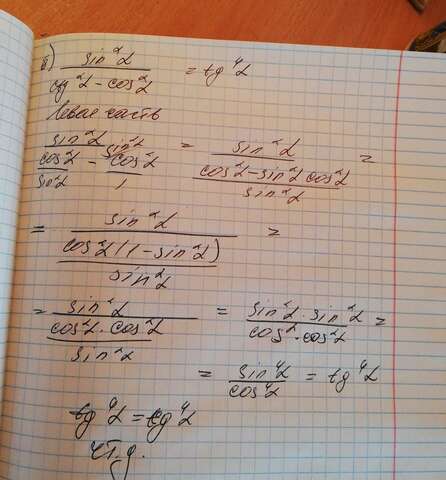 б) sin²α / (ctg²α - cos²α) = tg⁴α
Левая часть
sin²α / (cos²α/sin²α - cos²α/1) = sin²α / ((cos²α - sin²α cos²α)/sin²α) =
= sin²α / (cos²α(1 - sin²α)/sin²α) =
= sin²α / (cos²α · cos²α/sin²α) = sin²α · sin²α / cos²α · cos²α =
= sin⁴α / cos⁴α = tg⁴α
tg⁴α = tg⁴α
ч.т.д.